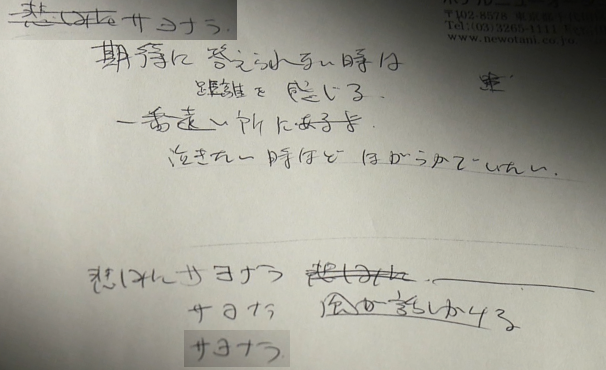 悲しみに サヨナラ
〒102-8578 東京都千代
Tel:(03)3265-1111
www.newotani.co.jp
期待に 答えられない時は
距離を 感じる
一番遠い所にあるよ
泣きたい時ほど ほがらかでいたい.
悲しみにサヨナラ 悲しみに
サヨナラ 風が話しかける
サヨナラ